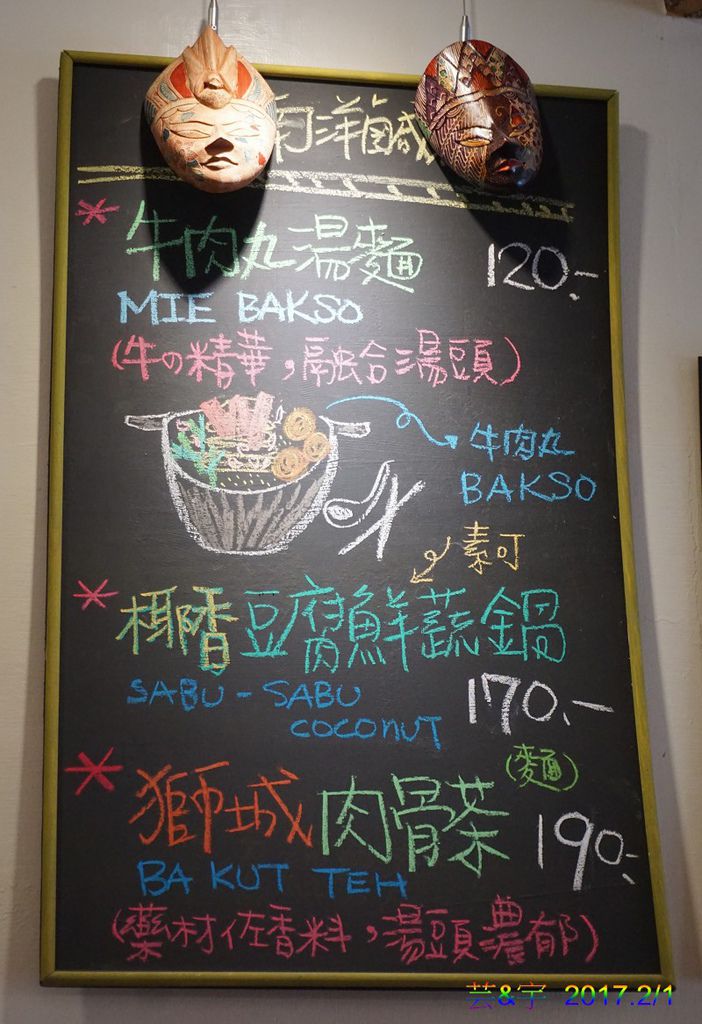 南洋鹹
* 牛肉丸湯麵 120.-
MIE BAKSO
(牛の精華，融合湯頭)
牛肉丸
BAKSO
素可
* 椰香豆腐鮮蔬鍋
SABU-SABU COCONUT 170.-
* 獅城肉骨茶 (麵) 190.-
BA KUT TEH
(藥材佐香料，湯頭濃郁)
芸&宇 2017.2/1